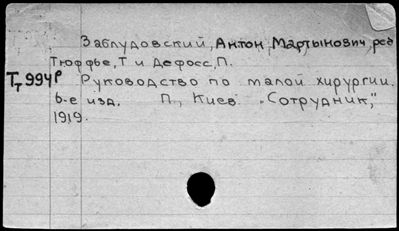 Заблудовский, Антон Мартынович, ред
Тюффье, Т и Дефосс, П.
Тт 994р Руководство по малой хирургии.
6-е изд. П., Киев "Сотрудник,"
1919.